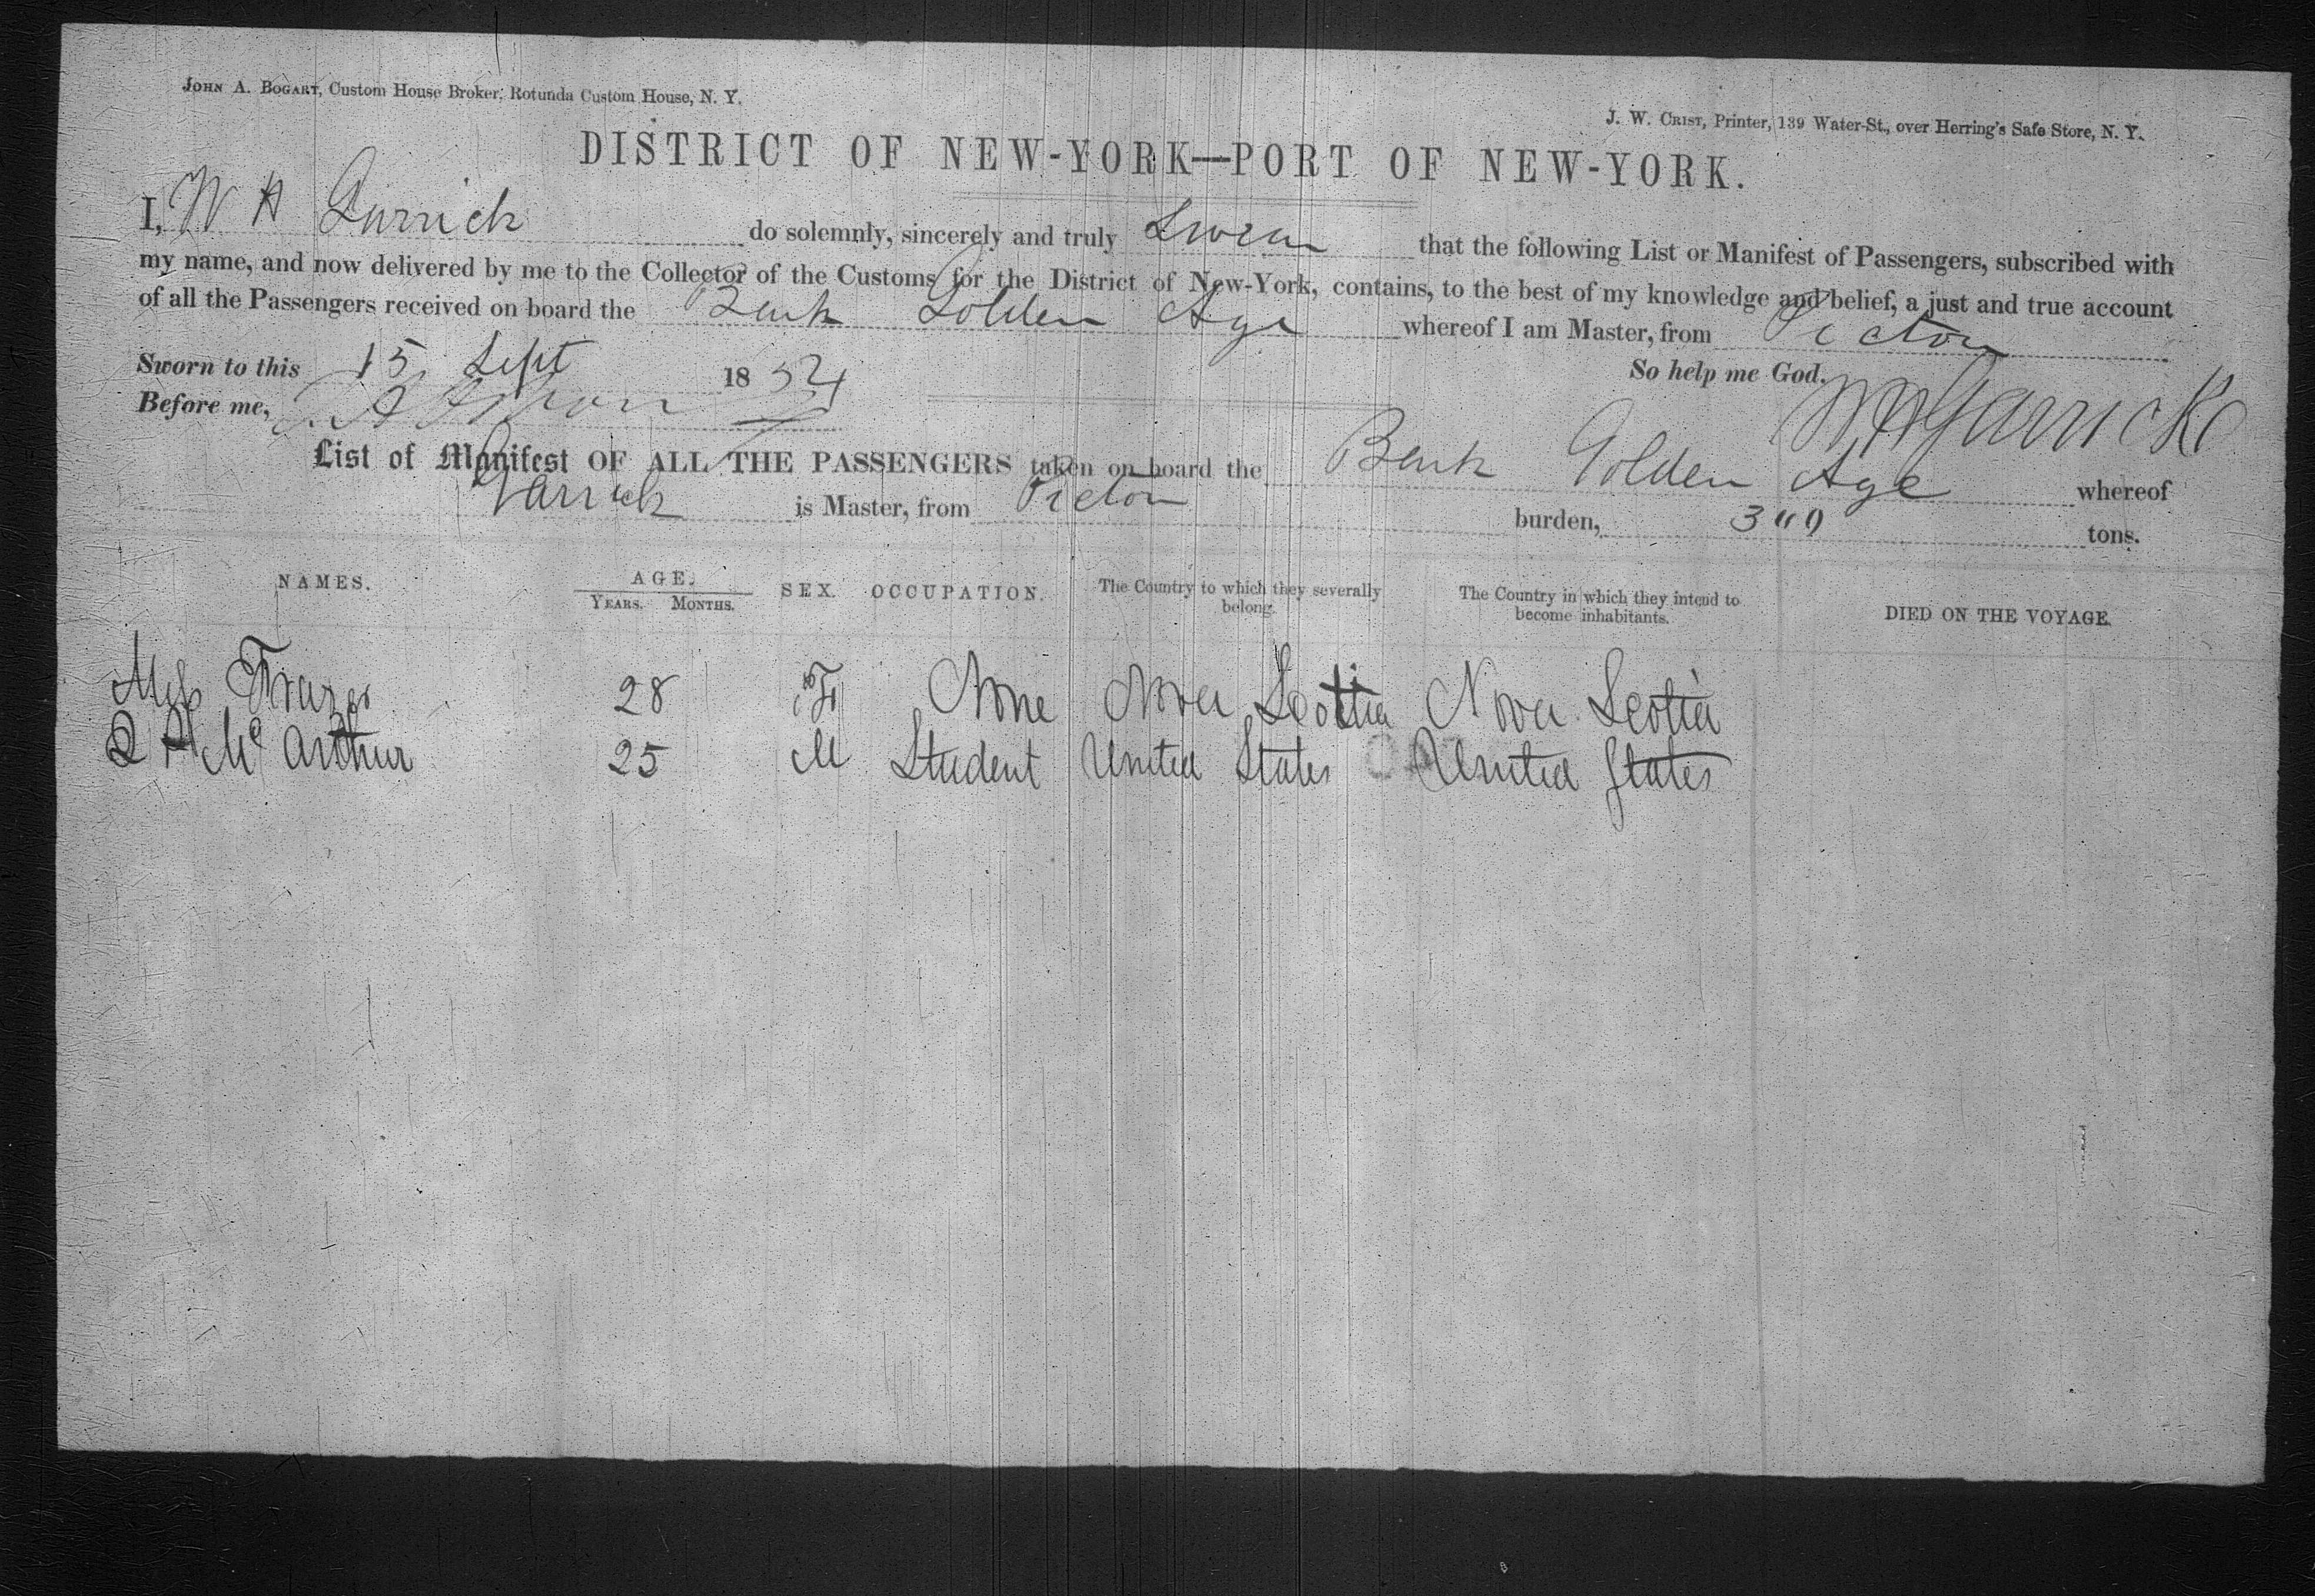 JOHN A. BOGART, Custom House Broker, Rotunda Custom House, N. Y.
J. W. CRIST, Printer, 139 Water-St., over Herring's Safe Store, N. Y.
DISTRICT OF NEW-YORK—PORT OF NEW-YORK.
I, W H Garrick do solemnly, sincerely and truly Swear that the following List or Manifest of Passengers, subscribed with
my name, and now delivered by me to the Collector of the Customs for the District of New-York, contains, to the best of my knowledge and belief, a just and true account
of all the Passengers received on board the Bark Golden Age whereof I am Master, from Pictou
Sworn to this 15 Sept 1854 So help me God.
Before me, W H Garrick
List of Manifest OF ALL THE PASSENGERS taken on board the Bark Golden Age whereof
Garrick is Master, from Pictou burden, tons.
NAMES. AGE. SEX. OCCUPATION. The Country to which they severally belong. The Country in which they intend to become inhabitants. DIED ON THE VOYAGE.
YEARS. MONTHS.
Miss Frazer 28 F None Nova Scotia Nova Scotia
McArthur 25 M Student United States United States